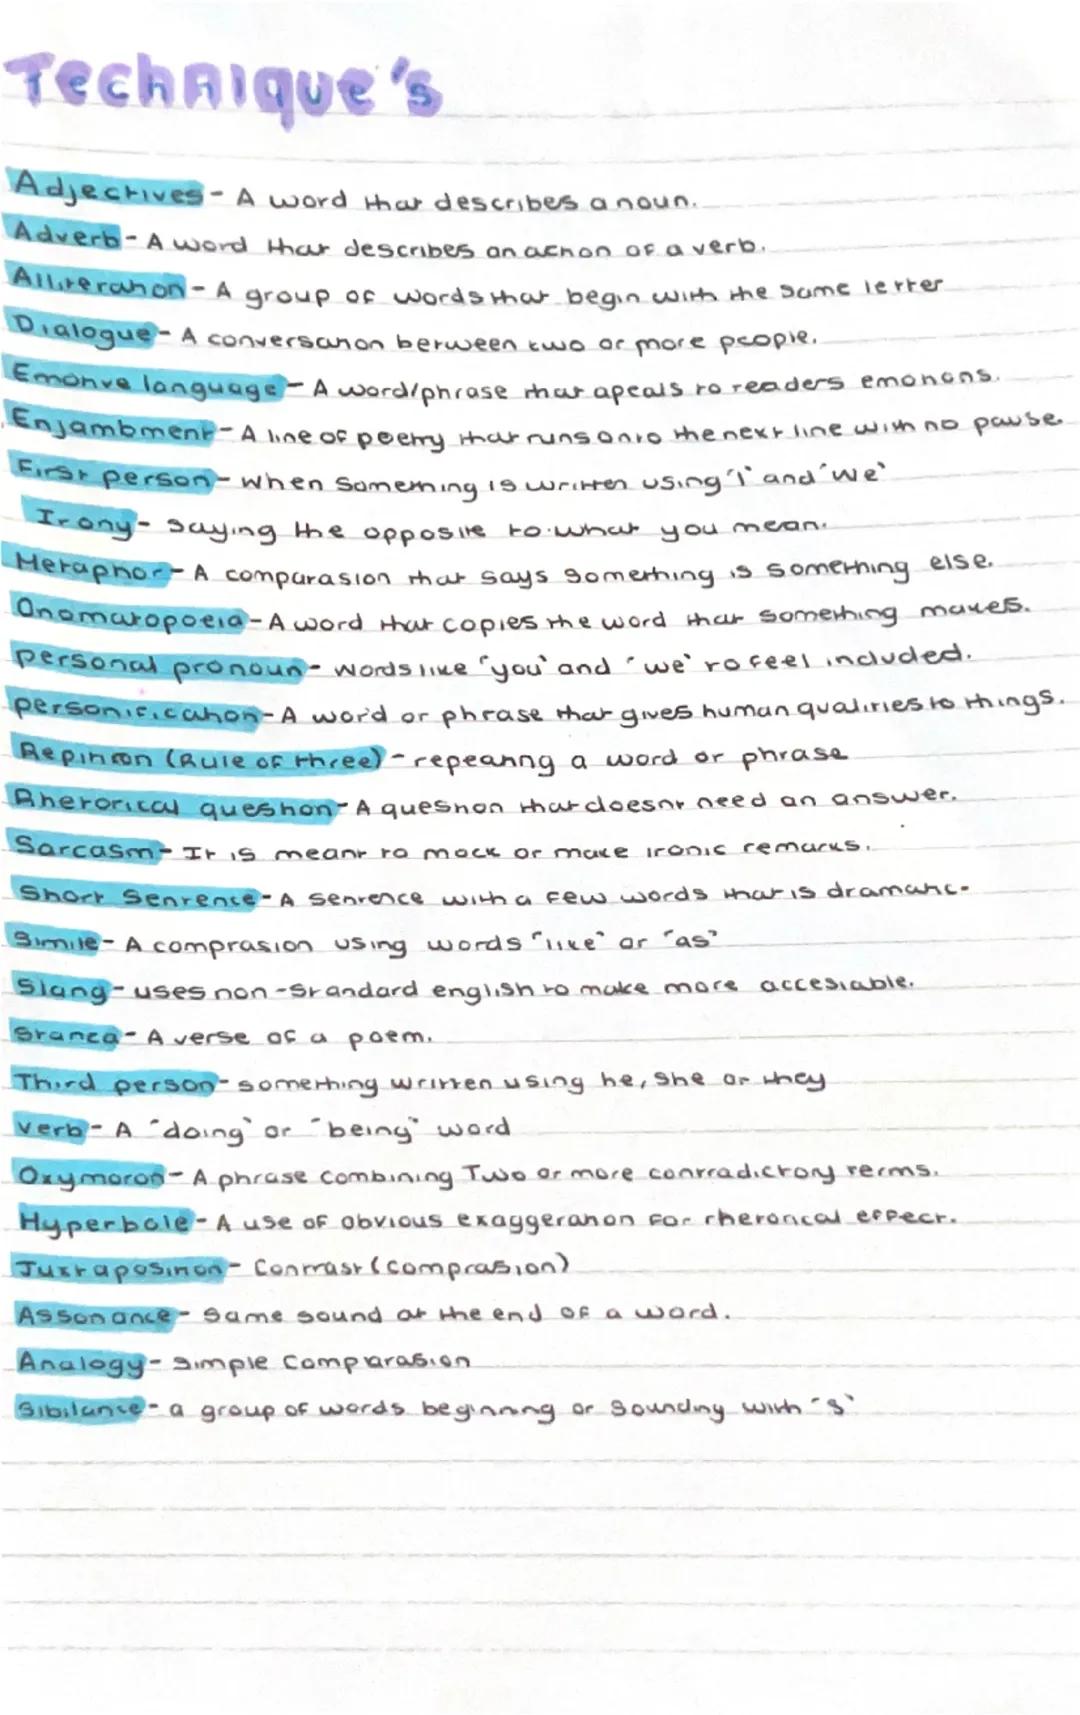 Technique's
Adjectives - A word that describes a noun.
Adverb - A word that describes an action of a verb.
Alliteration - A group of words that begin with the same letter
Dialogue - A conversation between two or more people.
Emotive language - A word/phrase that apeals to readers emotions.
Enjambment - A line of poetry that runs onto the next line with no pause.
First person - when something is written using 'I' and 'we'
Irony - saying the opposite to what you mean.
Metaphor - A comparasion that says something is something else.
Onomatopoeia - A word that copies the word that something makes.
personal pronoun - words like "you' and "we' to feel included.
personification - A word or phrase that gives human qualities to things.
Repition (Rule of three) - repeating a word or phrase
Rhetorical question - A question that doesnt need an answer.
Sarcasm - It is meant to mock or make ironic remarks.
Short Sentence - A sentence with a few words that is dramatic.
Simile - A comprasion using words "like" or "as"
Slang - uses non-standard english to make more accesiable.
Stanza - A verse of a poem.
Third person - something written using he, she or they
verb - A "doing" or "being" word
Oxymoron - A phrase combining Two or more contradictory terms.
Hyperbole - A use of obvious exaggeration for rhetorical effect.
Juxtaposition - Contrast (comprasion)
Assonance - Same sound at the end of a word.
Analogy - simple comparasion
Sibilance - a group of words beginning or sounding with 's'